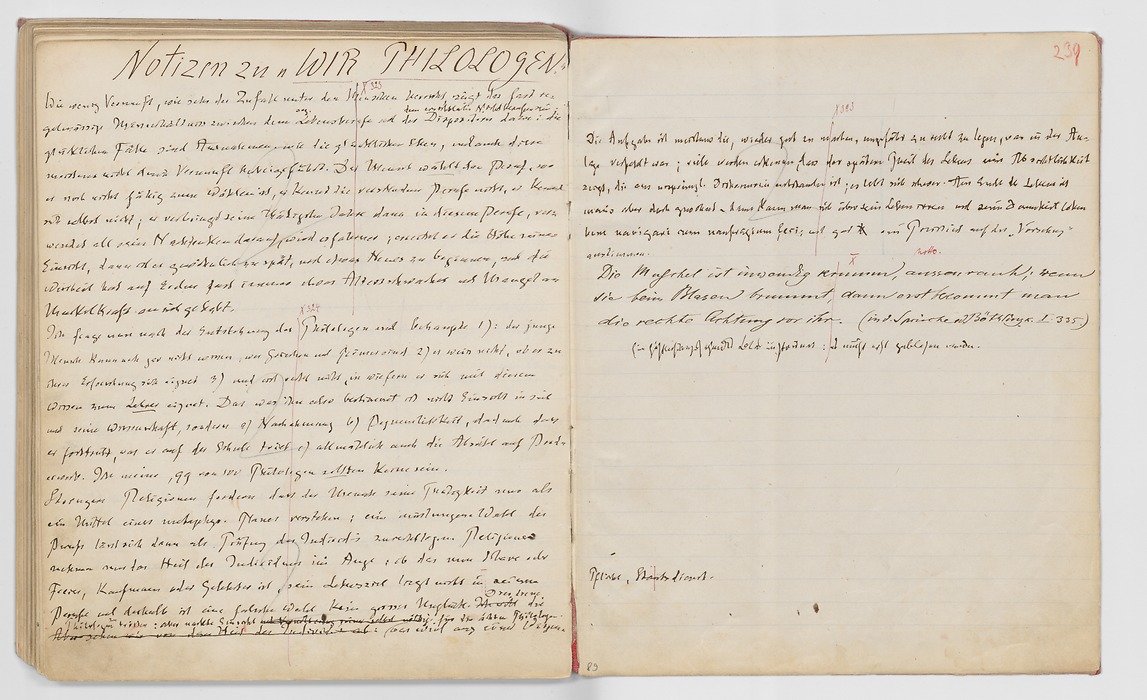 Notizen zu „WIR PHILOLOGEN".
X 323
Wie wenig Vernunft, wie sehr der Zufall unter den Menschen herrscht zeigt das fast re-
gelmässige Missverhältniss zwischen dem Lebensberufe und der Disposition dazu: die
glücklichen Fälle sind Ausnahmen wie die glücklichen Ehen, und auch diese
werden nicht durch Vernunft herbeigeführt. Der Mensch wählt den Beruf, wo
er noch nicht fähig zum Wählen ist, er kennt die verschiedenen Berufe nicht, er kennt
sich selbst nicht; er verbringt seine thätigsten Jahre dann in diesem Berufe, ver-
wendet all sein Nachdenken darauf, wird erfahrener; erreicht er die Höhe seiner
Einsicht, dann ist es gewöhnlich zu spät, noch etwas Neues zu beginnen, und die
Weisheit hat auf Erden fast immer etwas Altersschwaches und Mangel an
Muskelkraft an sich gehabt.
X 324
Ich frage nun nach der Entstehung des Philologen und behaupte 1): der junge
Mensch kann noch gar nicht wissen, wer Griechen und Römer sind 2) er weiss nicht, ob er zu
ihrer Erforschung sich eignet 3) und erst recht nicht, in wiefern er sich mit diesem
Wissen zum Lehrer eignet. Das was ihn also bestimmt ist nicht Einsicht in sich
und seine Wissenschaft, sondern a) Nachahmung b) Bequemlichkeit, dadurch dass
er forttreibt, was er auf der Schule trieb c) allmählich auch die Absicht auf Brod-
erwerb. Ich meine, 99 von 100 Philologen sollten keine sein.
Strengere Religionen fordern dass der Mensch seine Thätigkeit nur als
ein Mittel eines metaphys. Planes verstehe; eine misslungene Wahl des
Berufs lässt sich dann als Prüfung des Individ's zurechtlegen. Religionen
nehmen nur das Heil des Individuums ins Auge: ob der nun Sklave oder
Freier, Kaufmann oder Gelehrter ist, sein Lebensziel liegt nicht in seinem
Berufe und deshalb ist eine falsche Wahl kein grosses Unglück.
239
X 323
Die Aufgabe ist meistens die, wieder gut zu machen, ungefähr zurecht zu legen, was in der An-
lage verfehlt war; viele werden erkennen, dass der spätere Theil des Lebens eine Absichtlichkeit
zeigt, die aus ursprüngl. Disharmonie entstanden ist; es lebt sich schwer. Am Ende des Lebens ist
man's aber doch gewohnt - dann kann man sich über sein Leben irren und seine Dummheit loben
bene navigavi cum naufragium feci; und gar ein Danklied auf die „Vorsehung"
anstimmen.
Motto.
X
Die Muschel ist inwendig krumm, aussen rauh; wenn
sie beim Blasen brummt, dann erst bekommt man
die rechte Achtung vor ihr. (ind. Sprüche ed Böthlingk. I 335)
Pflicht, Staatsdienst.
83